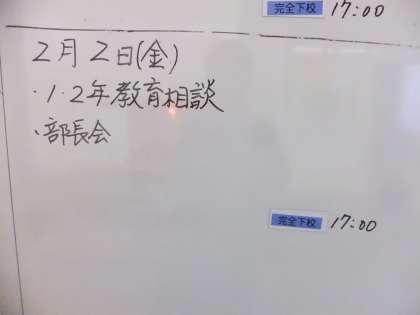 完全下校 17:00
2月2日(金)
・1・2年教育相談
・部長会
完全下校 17:00